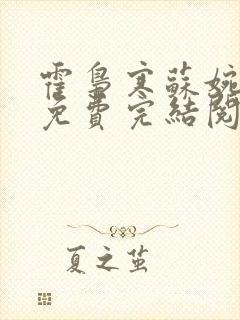 霍梟寒蘇婉
免費完結閱
夏之茧